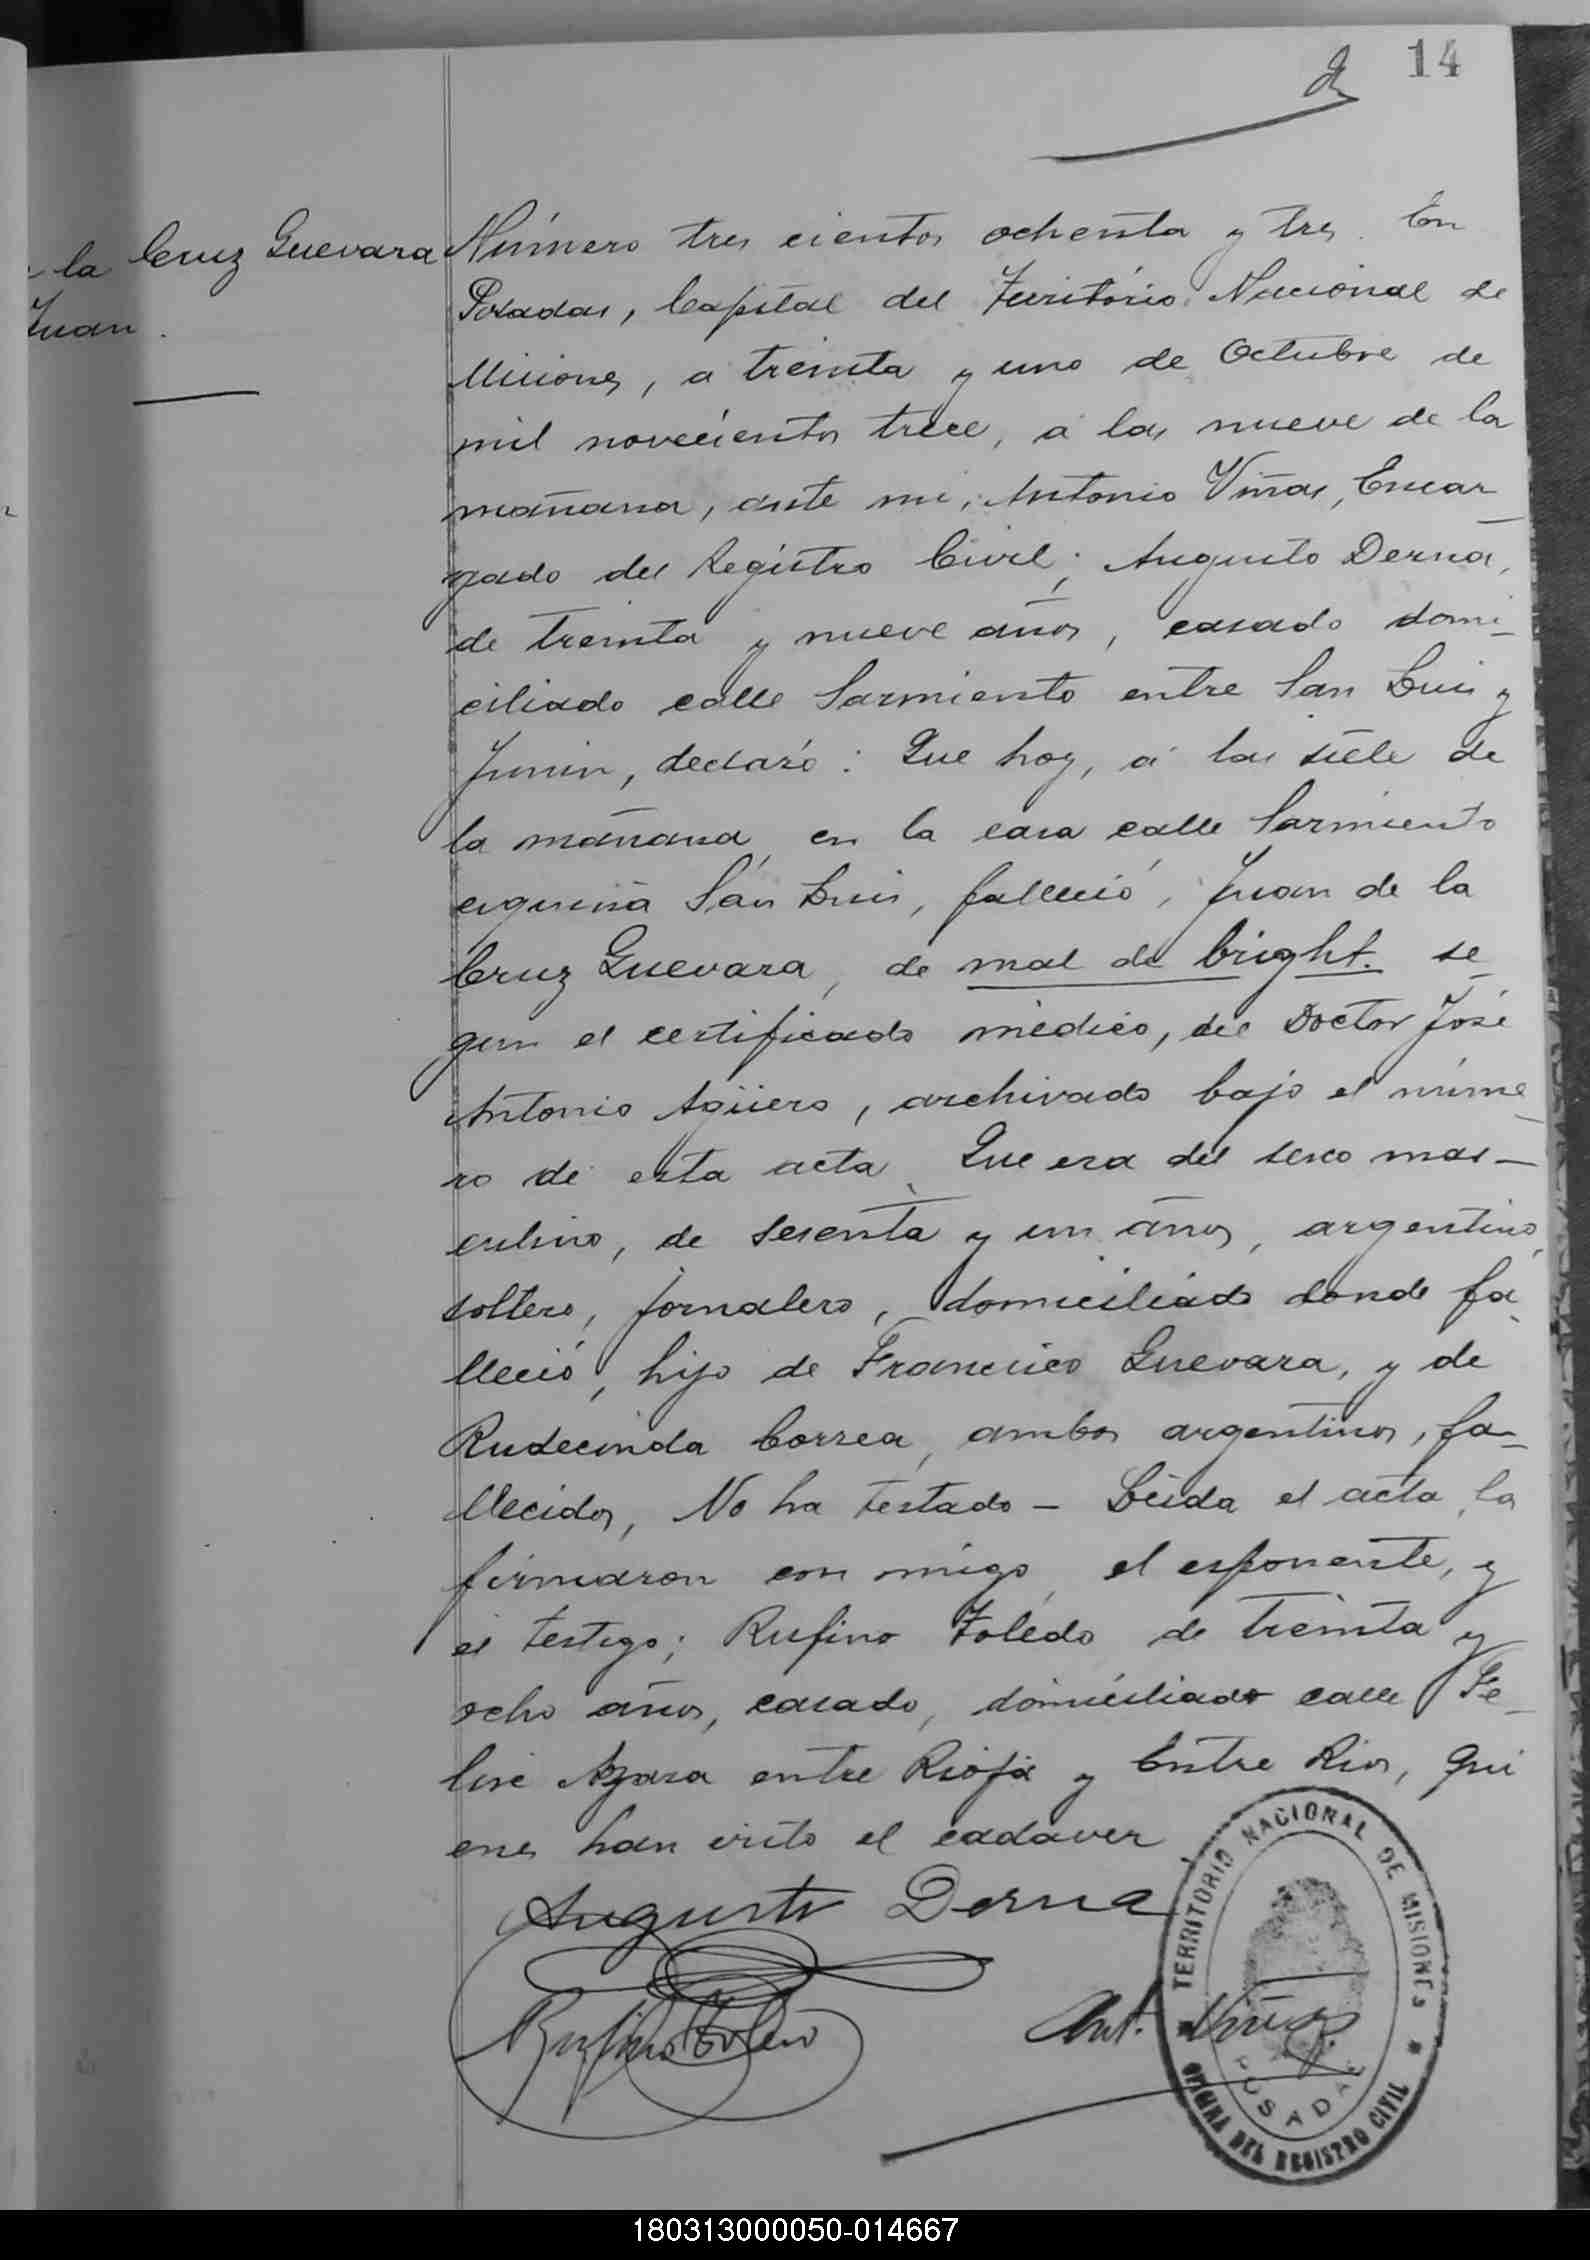 14
la Cruz Guevara
Juan.
Número tres cientos ochenta y tres. En
Posadas, Capital del Território Nacional de
Misiones, a treinta y uno de Octubre de
mil novecientos trece, á las nueve de la
mañana, ante mi, Antonio Viñas, Encar
gado del Registro Civil; Augusto Derna,
de treinta y nueve años, casado domi-
ciliado calle Sarmiento entre San Luis y
Junin, declaró: Que hoy, á las siete de
la mañana, en la casa calle Sarmiento
esquina San Luis, falleció, Juan de la
Cruz Guevara, de mal de bright. se-
gun el certificado médico, del Doctor José
Antonio Agüero, archivado bajo el núme
ro de esta acta. Que era del sexo mas-
culino, de sesenta y un años, argentino,
soltero, jornalero, domiciliado donde fa-
lleció, hijo de Francisco Guevara, y de
Rudecinda Correa, ambos argentinos, fa-
llecidos, No ha testado - Leida el acta, la
firmaron con migo, el esponente, y
el testigo; Rufino Toledo de treinta y
ocho años, casado, domiciliado calle Fe-
lixe Azara entre Rioja y Entre Rios, qui
enes han visto el cadaver
Augusto Derna
Rufino Toledo
Ant. Viñas
TERRITORIO NACIONAL DE MISIONES
POSADAS
OFICINA DEL REGISTRO CIVIL
180313000050-014667